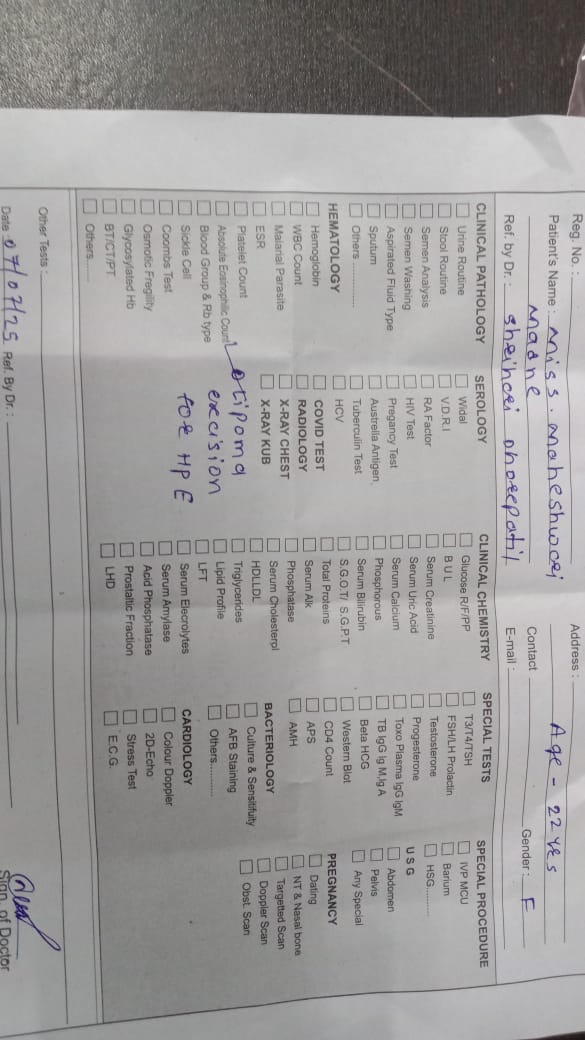 Reg. No. :
Patient's Name : Miss. Maheshwari
Madne
Ref. by Dr. :
Address :
Age - 22 yrs
Contact
Gender : F
E-mail :
CLINICAL PATHOLOGY
Urine Routine
Stool Routine
Semen Analysis
Semen Washing
Aspirated Fluid Type
Sputum
Others ............
HEMATOLOGY
Hemoglobin
WBC Count
Malarial Parasite
ESR
Platelet Count
Absolute Eosinophilic Count
Blood Group & Rb type
Sickle Cell
Coombs Test
Osmotic Fregility
Glycosylated Hb
BT/CT/PT
Others....
SEROLOGY
Widal
V.D.R.I
RA Factor
HIV Test
Pregancy Test
Australia Antigen
Tuberculin Test
HCV
COVID TEST
RADIOLOGY
X-RAY CHEST
X-RAY KUB
Lipoma
excision
for HPE
CLINICAL CHEMISTRY
Glucose R/F/PP
B U L
Serum Creatinine
Serum Uric Acid
Serum Calcium
Phosphorous
Serum Bilirubin
S.G.O.T/ S.G.P.T
Total Proteins
Serum Alk
Phosphatase
Serum Cholesterol
HDLLDL
Triglycerides
Lipid Profile
LFT
Serum Elecrolytes
Serum Amylase
Acid Phosphatase
Prostaltic Fraction
LHD
SPECIAL TESTS
T3/T4/TSH
FSH/LH Prolactin
Testosterone
Progesterone
Toxo Plasma IgG IgM
TB IgG Ig M,Ig A
Beta HCG
Western Blot
CD4 Count
APS
AMH
BACTERIOLOGY
Culture & Sensitifuity
AFB Staining
Others...........
CARDIOLOGY
Colour Doppler
2D-Echo
Stress Test
E.C.G.
SPECIAL PROCEDURE
IVP MCU
Barium
HSG..........
U S G
Abdomen
Pelvis
Any Special
PREGNANCY
Dating
NT & Nasal bone
Targetted Scan
Doppler Scan
Obst. Scan
Other Tests :
Date : 07/07/25 Ref. By Dr. :
Sign. of Doctor